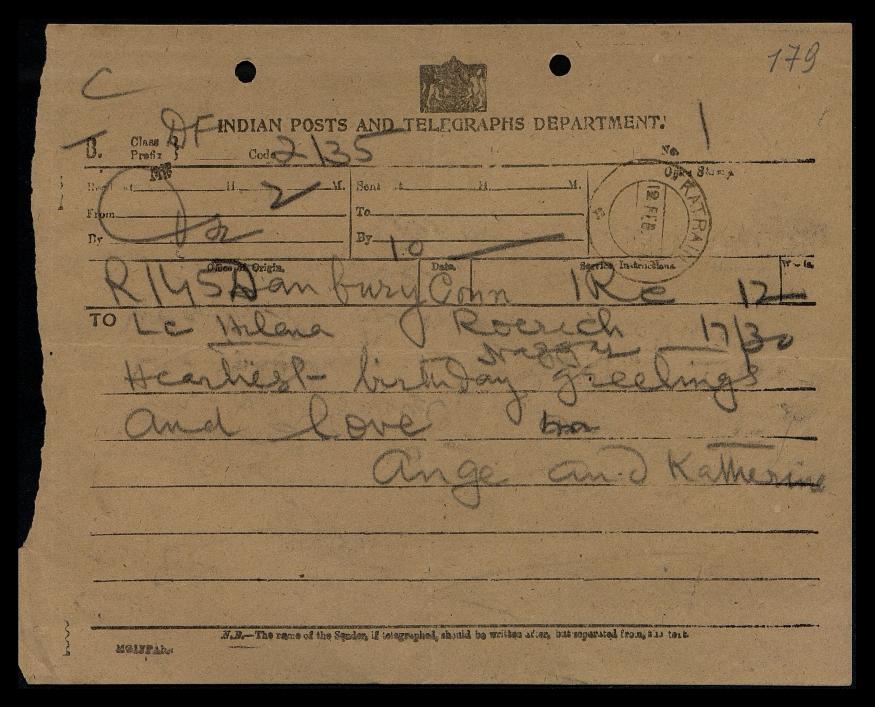 179
C
INDIAN POSTS AND TELEGRAPHS DEPARTMENT.
D. Class Prefix } DF Code 2135 No. 1
H. 2 M. Sent H. M. Office Stamp
From To KATRAIN 12 FEB
By By 10
Office of Origin. Date. Service Instructions
R1145 Danbury Conn 1Re 12
TO Lc Helena Roerich 17/30
Naggar
Heartiest birthday greetings
and love
Ange and Katherine
N.B.—The name of the Sender, if telegraphed, should be written after, but separated from, the text.